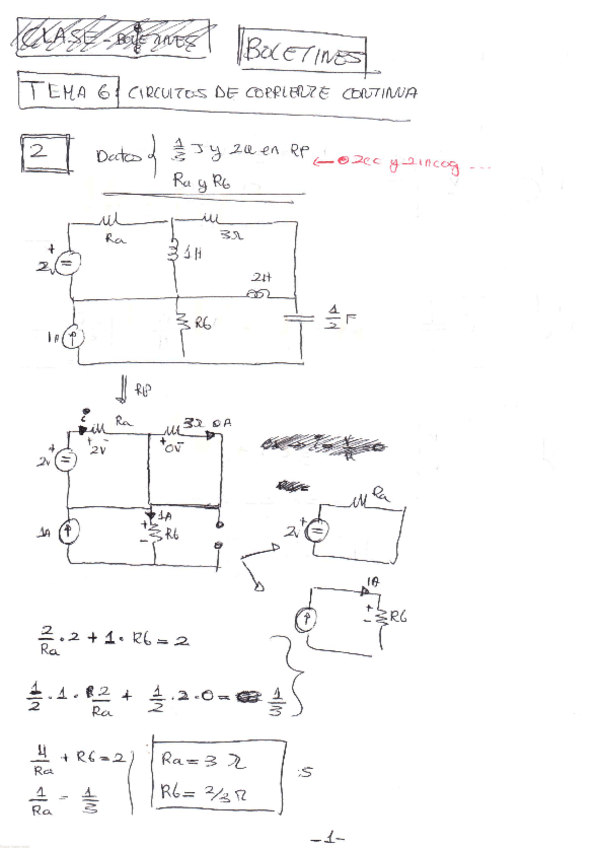 CLASE - BOLETINES
BOLETINES
TEMA 6 CIRCUITOS DE CORRIENTE CONTINUA
2 Datos { 1/3 J y 2W en RP
Ra y R6
← 2ec y 2incog ...
Ra
3Ω
1H
2H
2v
1A
R6
1/2 F
RP
i Ra 3Ω 0A
2v
+ 2V -
+ 0V -
1A
1A
R6
Ra
2v
1A
R6
2/Ra · 2 + 1 · R6 = 2
1/2 · 1 · 2/Ra + 1/2 · 2 · 0 = 1/3
4/Ra + R6 = 2
1/Ra = 1/3
Ra = 3 Ω
R6 = 2/3 Ω
-1-